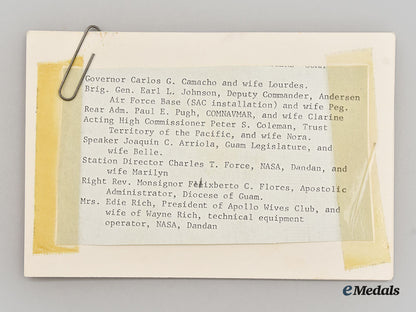 Governor Carlos G. Camacho and wife Lourdes.
Brig. Gen. Earl L. Johnson, Deputy Commander, Andersen
Air Force Base (SAC installation) and wife Peg.
Rear Adm. Paul E. Pugh, COMNAVMAR, and wife Clarine
Acting High Commissioner Peter S. Coleman, Trust
Territory of the Pacific, and wife Nora.
Speaker Joaquin C. Arriola, Guam Legislature, and
wife Belle.
Station Director Charles T. Force, NASA, Dandan, and
wife Marilyn
Right Rev. Monsignor Felixberto C. Flores, Apostolic
Administrator, Diocese of Guam.
Mrs. Edie Rich, President of Apollo Wives Club, and
wife of Wayne Rich, technical equipment
operator, NASA, Dandan
eMedals